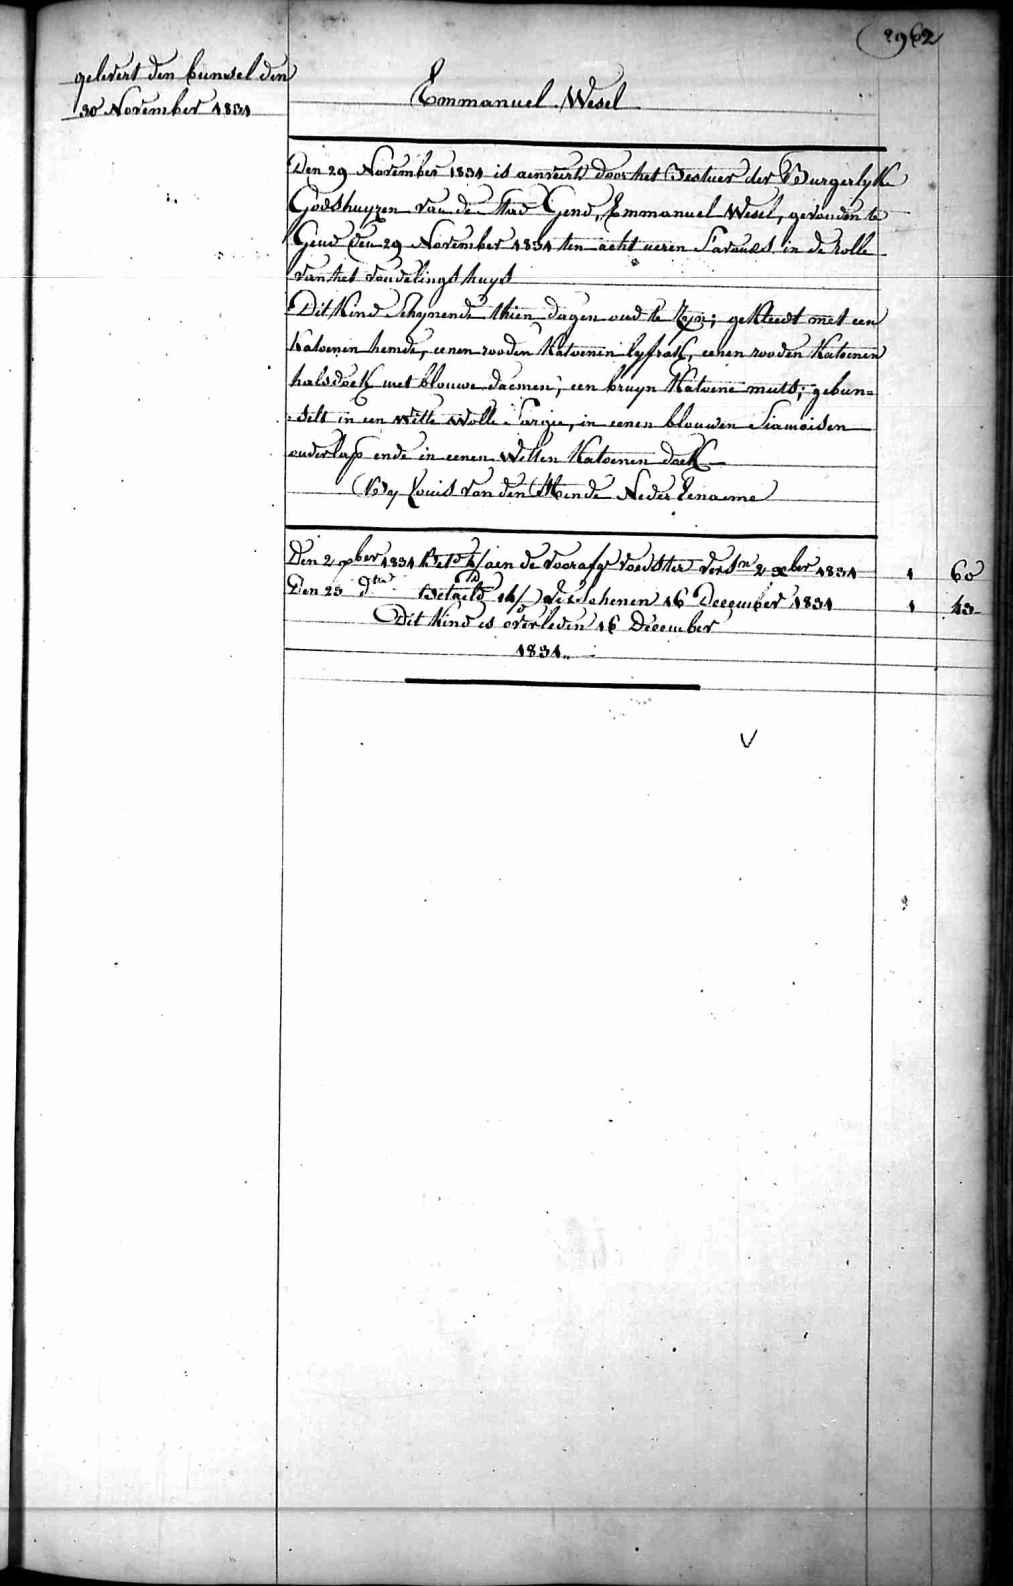 2962
gelevert den bunssel den
30 November 1831
Emmanuel Wesel
Den 29 November 1831 is aenveird door het Bestuer der Burgerlyke
Godshuyzen van de stad Gend, Emmanuel Wesel, gevonden te
Gend den 29 November 1831 ten acht ueren s'avonds in de rolle
van het vondelingshuys
Dit kind schynende thien dagen oud te zyn; gekleedt met een
katoenen hemde, eenen rooden katoenen lyfrok, eenen rooden katoenen
halsdoek met blouwe daemen, een bruyn katoene muts; gebun=
=selt in een witte wolle sargie, in eenen blouwen siamoisen
ouderlap ende in eenen witten katoenen doek
By Louis van den Hende Neder Eename
Den 2 xber 1831 Bet.d aen de voorafg.e voedster vers.n 2 xber 1831 1 60
Den 23 d.to Betaeld verschenen 16 December 1831 1 43
Dit kind is overleden 16 December
1831.